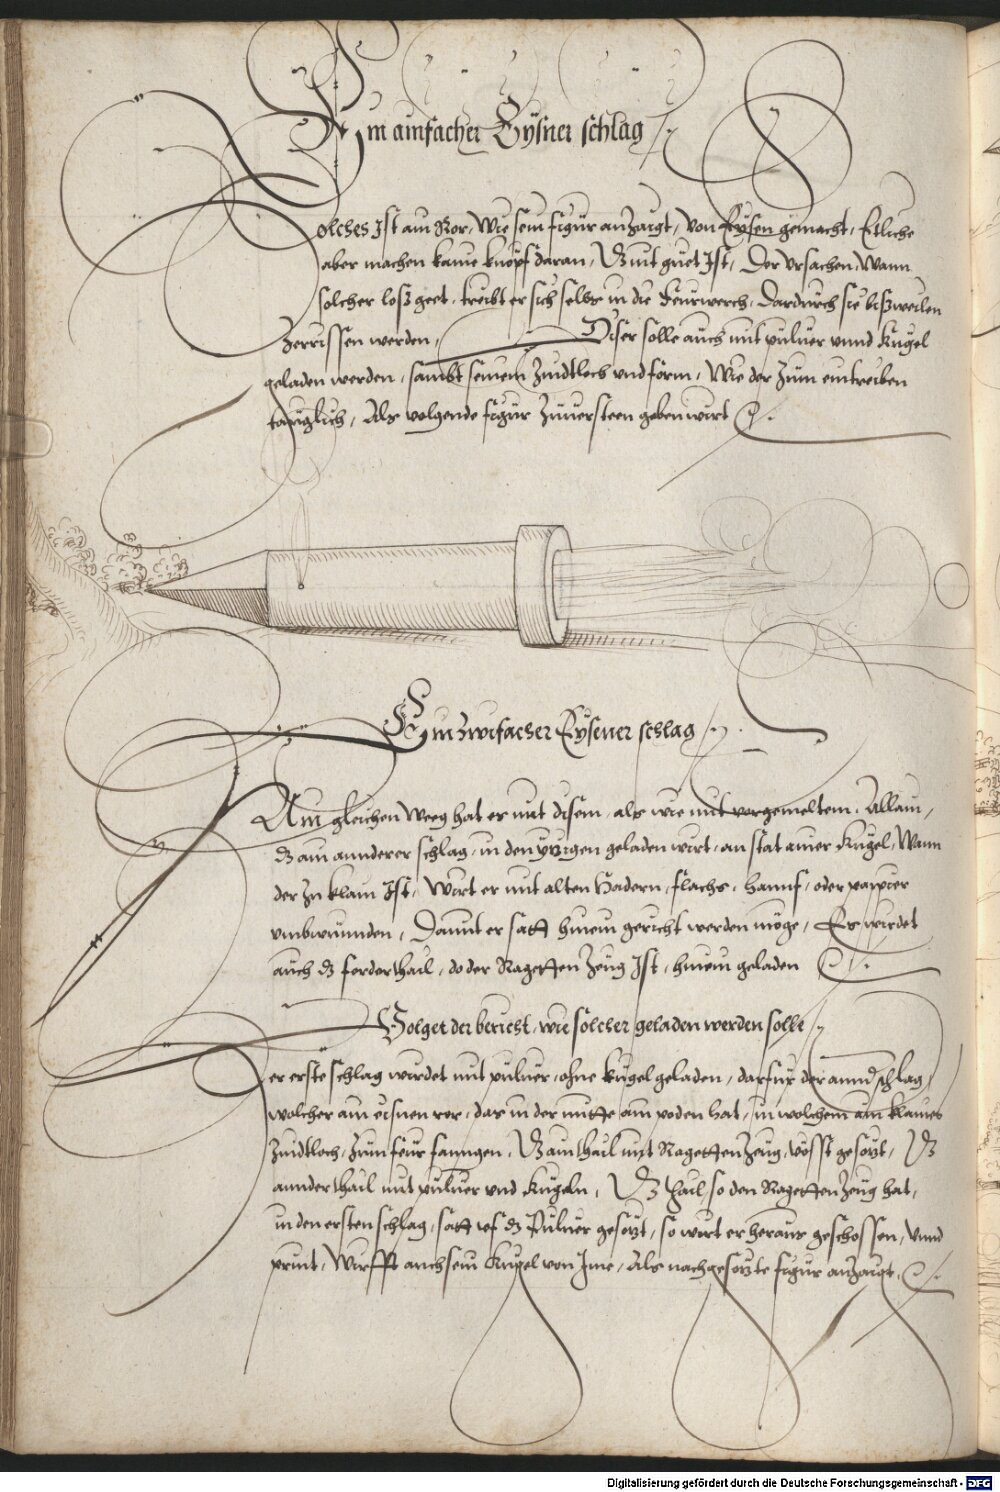 Ein ainfacher Eysner schlag
Solches Ist ain Ror, Wie sein figur anzaigt, von Eysen gemacht, Etliche
aber machen kaine knöpf daran, Dz nit guet Ist, Der vrsachen, Wann
solcher losz geet, treibt er sich selbs in die feurwerch, Dardurch sie biszweilen
Zerrissen werden, Diser solle auch mit puluer vnnd Kugel
geladen werden, sambt seinem Zindtloch vnd form, Wie der zum eintreiben
tauglich, Als volgende figur zuuersteen geben wirt
Ein Zwifacher Eysener schlag
Am gleichen Weeg hat es mit disem, als wie mit vorgemeltem. Allain,
dz ain annderer schlag, in den yezigen geladen wirt, an stat ainer Kugel, Wann
der Zu klain Ist, Wirt er mit alten Hadern, flachs, hannf, oder pappier
vmbwunnden, Damit er satt hinein gericht werden möge, Es wirdet
auch dz forderthail, do der Ragetten Zeug Ist, hinein geladen
Volget der bericht, wie solcher geladen werden solle
Der erste schlag wirdet mit puluer, ohne kugel geladen, darfur der annd schlag,
wolcher ain eisnen ror, dar in der mitte ain poden hat, in wolchem ain klaines
Zindtloch, Zum feur fanngen. Dz ain thail mit Ragetten Zeug, vösst gesözt, Dz
annder thail mit puluer vnd Kugeln, Dz thail, so den Ragetten Zeug hat,
in den ersten schlag, satt vf dz Puluer gesözt, so wirt er heraus geschossen, vnnd
print, Wirfft auch sein Kugel von Ime, Als nachgesözte figur anzaigt.
Digitalisierung gefördert durch die Deutsche Forschungsgemeinschaft - DFG